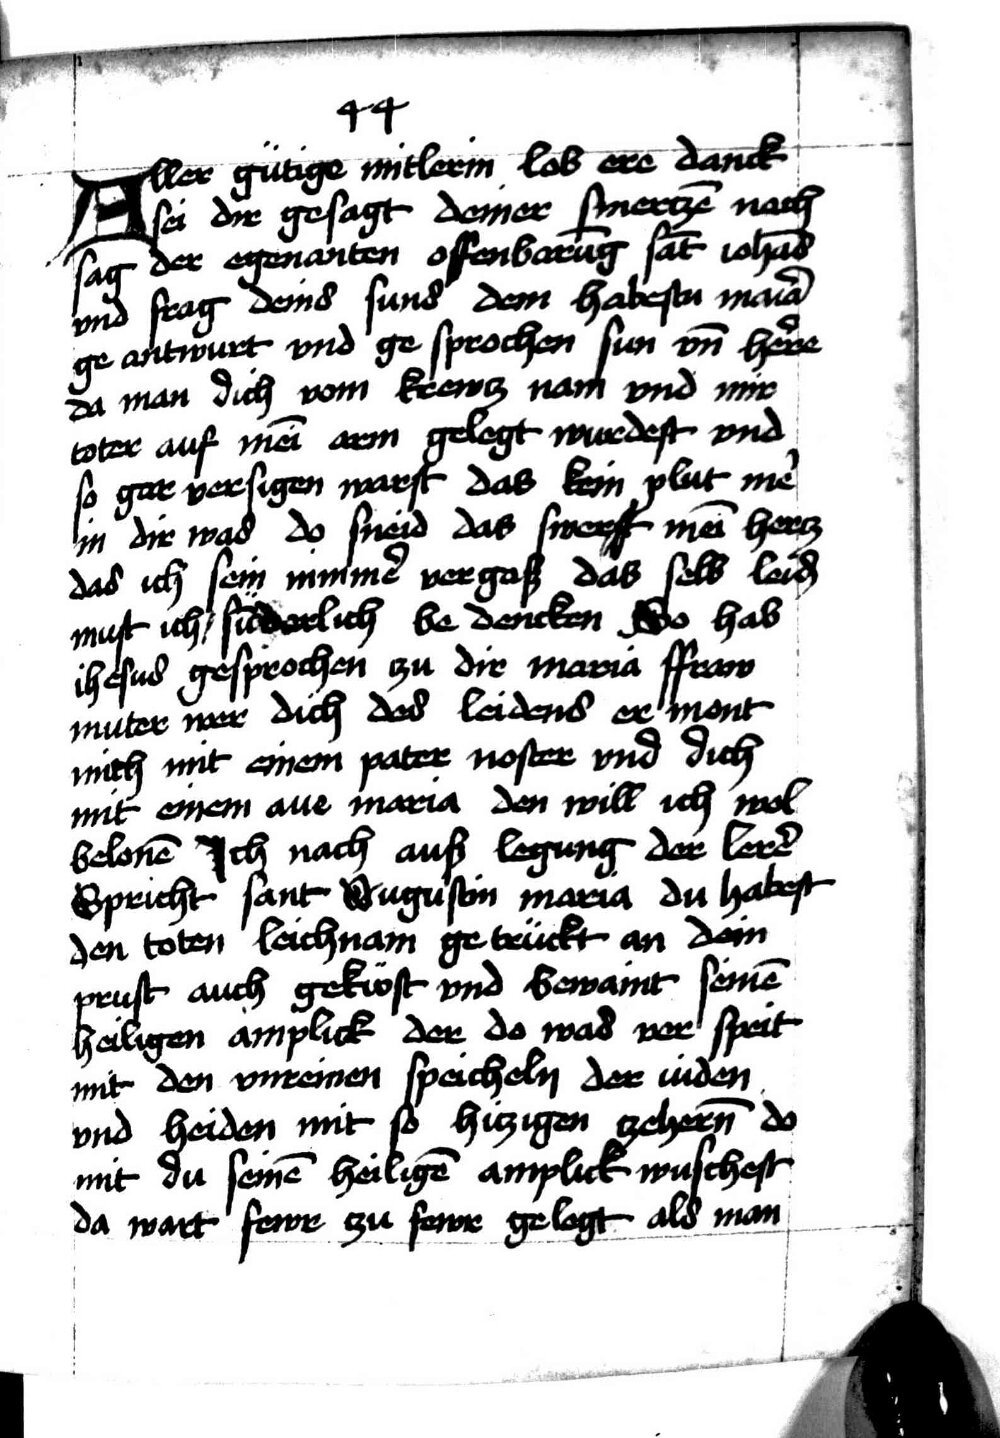 44
Aller gütige mitlerin lob ere danck
sei dir gesagt deiner smertzē nach
sag der egenanten offenbarūg sāt iohās
vnd frag deins suns dem habestu maīā
ge antwurt vnd ge sprochen sun vn̄ herre
da man dich vom krewtz nam vnd mir
toter auf mēi arm gelegt wurdest vnd
so gar versigen warst das kein plut mē
in dir was do sneid das swert mēi hertz
das ich sein nimmē vergaß das selb leidn
must ich sūderlich be dencken So hab
ihesus gesprochen zu dir maria ffraw
muter wer dich des leidens er mont
mich mit einem pater noster vnd dich
mit einem aue maria den will ich wol
belonē Ich nach auß legung der lerē
Spricht sant Augustin maria du habest
den toten leichnam ge trückt an dein
prust auch geküst vnd bewaint seinē
heiligen amplick der do was ver speit
mit den vnreinen speicheln der iuden
vnd heiden mit so hitzigen zehern̄ do
mit du seinē heiligē amplick wuschest
da wart fewr zu fewr gelegt als man